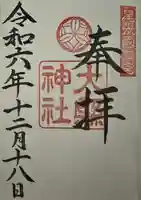 奉拝
大縣神社
令和六年十二月十八日